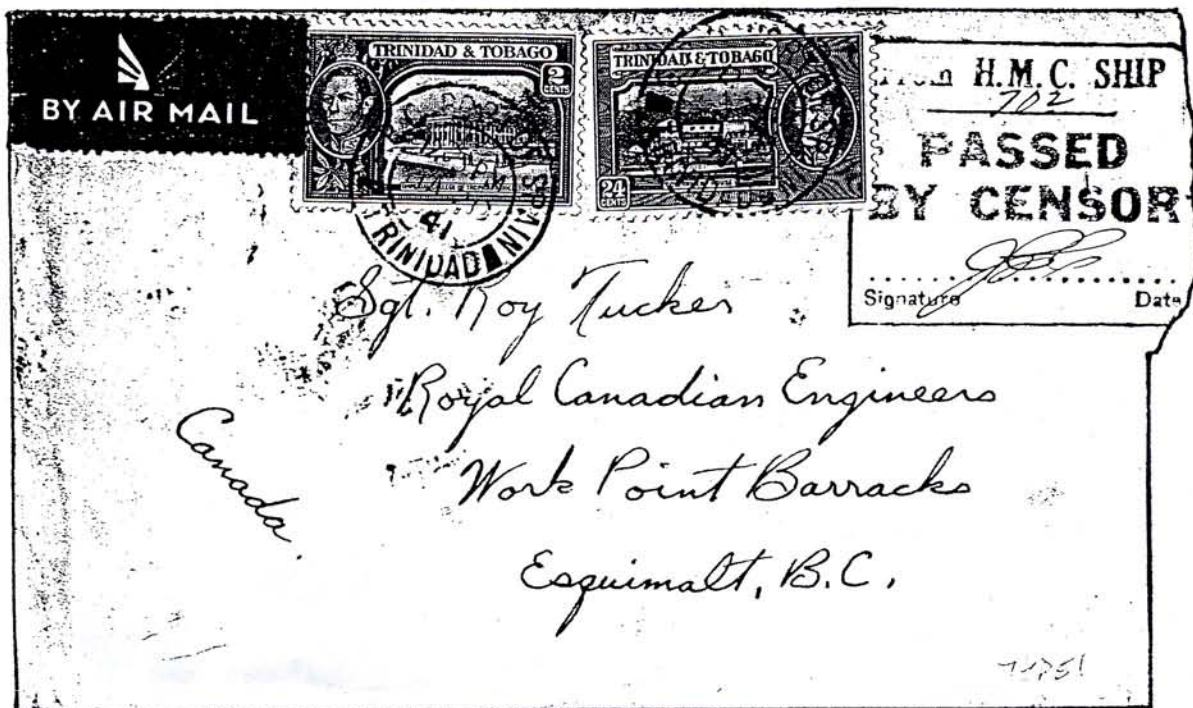 BY AIR MAIL
TRINIDAD & TOBAGO
2
CENTS
TRINIDAD & TOBAGO
24
CENTS
41
TRINIDAD
H.M.C. SHIP
702
PASSED
BY CENSOR
Signature Date
Sgt. Roy Tucker
Royal Canadian Engineers
Work Point Barracks
Esquimalt, B.C.
Canada.